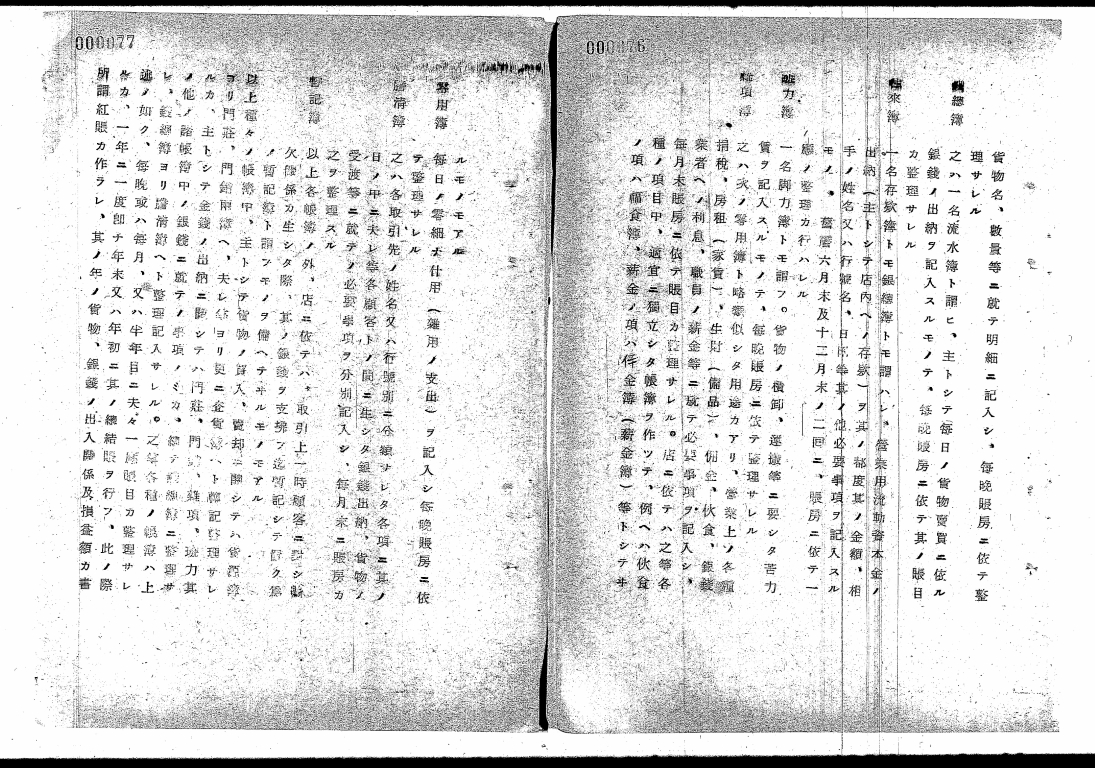 000076
貨物名、數量等ニ就テ明細ニ記入シ、每晚賬房ニ依テ整
理サレル
總簿
之ハ一名流水簿ト謂ヒ、主トシテ每日ノ貨物賣買ニ依ル
銀錢ノ出納ヲ記入スルモノテ、每晚賬房ニ依テ其ノ賬目
カ整理サレル
來簿
一名存欵簿トモ銀總簿トモ謂ハレ、營業用流動資本金ノ
出納(主トシテ店內ヘノ存欵)ヲ其ノ都度其ノ金額、相
手ノ姓名又ハ行號名、日附等其ノ他必要事項ヲ記入スル
モノ、舊曆六月末及十二月末ノ二回ニ、賬房ニ依テ一
應ノ整理カ行ハレル
力簿
一名脚力簿トモ謂フ。貨物ノ積卸、運搬等ニ要シタ苦力
賃ヲ記入スルモノテ、每晚賬房ニ依テ整理サレル
項簿
之ハ次ノ零用簿ト略類似シタ用途カアリ、營業上ノ各種
捐稅、房租(家賃)、生財(備品)、佣金、伙食、銀錢
業者ヘノ利息、職員ノ薪金等ニ就テ必要事項ヲ記入シ、
每月末賬房ニ依テ賬目カ整理サレル。店ニ依テハ之等各
種ノ項目中、適宜ニ獨立シタ帳簿ヲ作ツテ、例ヘハ伙食
ノ項ハ福食簿、薪金ノ項ハ俸金簿(薪金簿)等トシテヰ
000077
ルモノモアル
零用簿
每日ノ零細ナ仕用(雜用ノ支出)ヲ記入シ每晚賬房ニ依
テ整理サレル
清簿
之ハ各取引先ノ姓名又ハ行號別ニ分類サレタ各項ニ其ノ
日ノ中ニ夫レ等各顧客トノ間ニ生シタ銀錢出納、貨物ノ
受渡等ニ就テノ必要事項ヲ分別記入シ、每月末ニ賬房カ
之ヲ整理スル
暫記簿
以上各帳簿ノ外、店ニ依テハ、取引上一時顧客ニ對シ賒
欠關係カ生シタ際、其ノ銀錢ヲ支拂フ迄暫記シテ置ク爲
ノ暫記簿ト謂フモノヲ備ヘテヰルモノモアル
以上種々ノ帳簿中、主トシテ貨物ノ買入、賣却ニ關シテハ貨源簿
ヨリ門莊、門銷兩簿ヘ、夫レ等ヨリ更ニ金貨簿ヘト轉記整理サレ
ルカ、主トシテ金錢ノ出納ニ關シテハ門莊、門銷、雜項、力其
ノ他ノ諸帳簿中ノ銀錢ニ就テノ事項ノミカ、總テ銀總簿ニ整理サ
レ、銀總簿ヨリ謄清簿ヘト整理記入サレル。之等各種ノ帳簿ハ上
述ノ如ク、每晚或ハ每月、又ハ半年目ニ夫々一應賬目カ整理サレ
ルカ、一年ニ一度卽チ年末又ハ年初ニ其ノ總結賬ヲ行フ、此ノ際
所謂紅賬カ作ラレ、其ノ年ノ貨物、銀錢ノ出入關係及損益額カ書